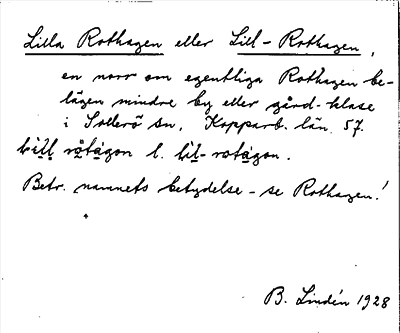 Lilla Rothagen eller Lill-Rothagen,
en norr om egentliga Rothagen be-
lägen mindre by eller gård-klase
i Sollerö sn, Kopparb. län. 57.
lill rǫtágon l. lil-rotágon.
Betr. namnets betydelse - se Rothagen!
B. Lindén 1928